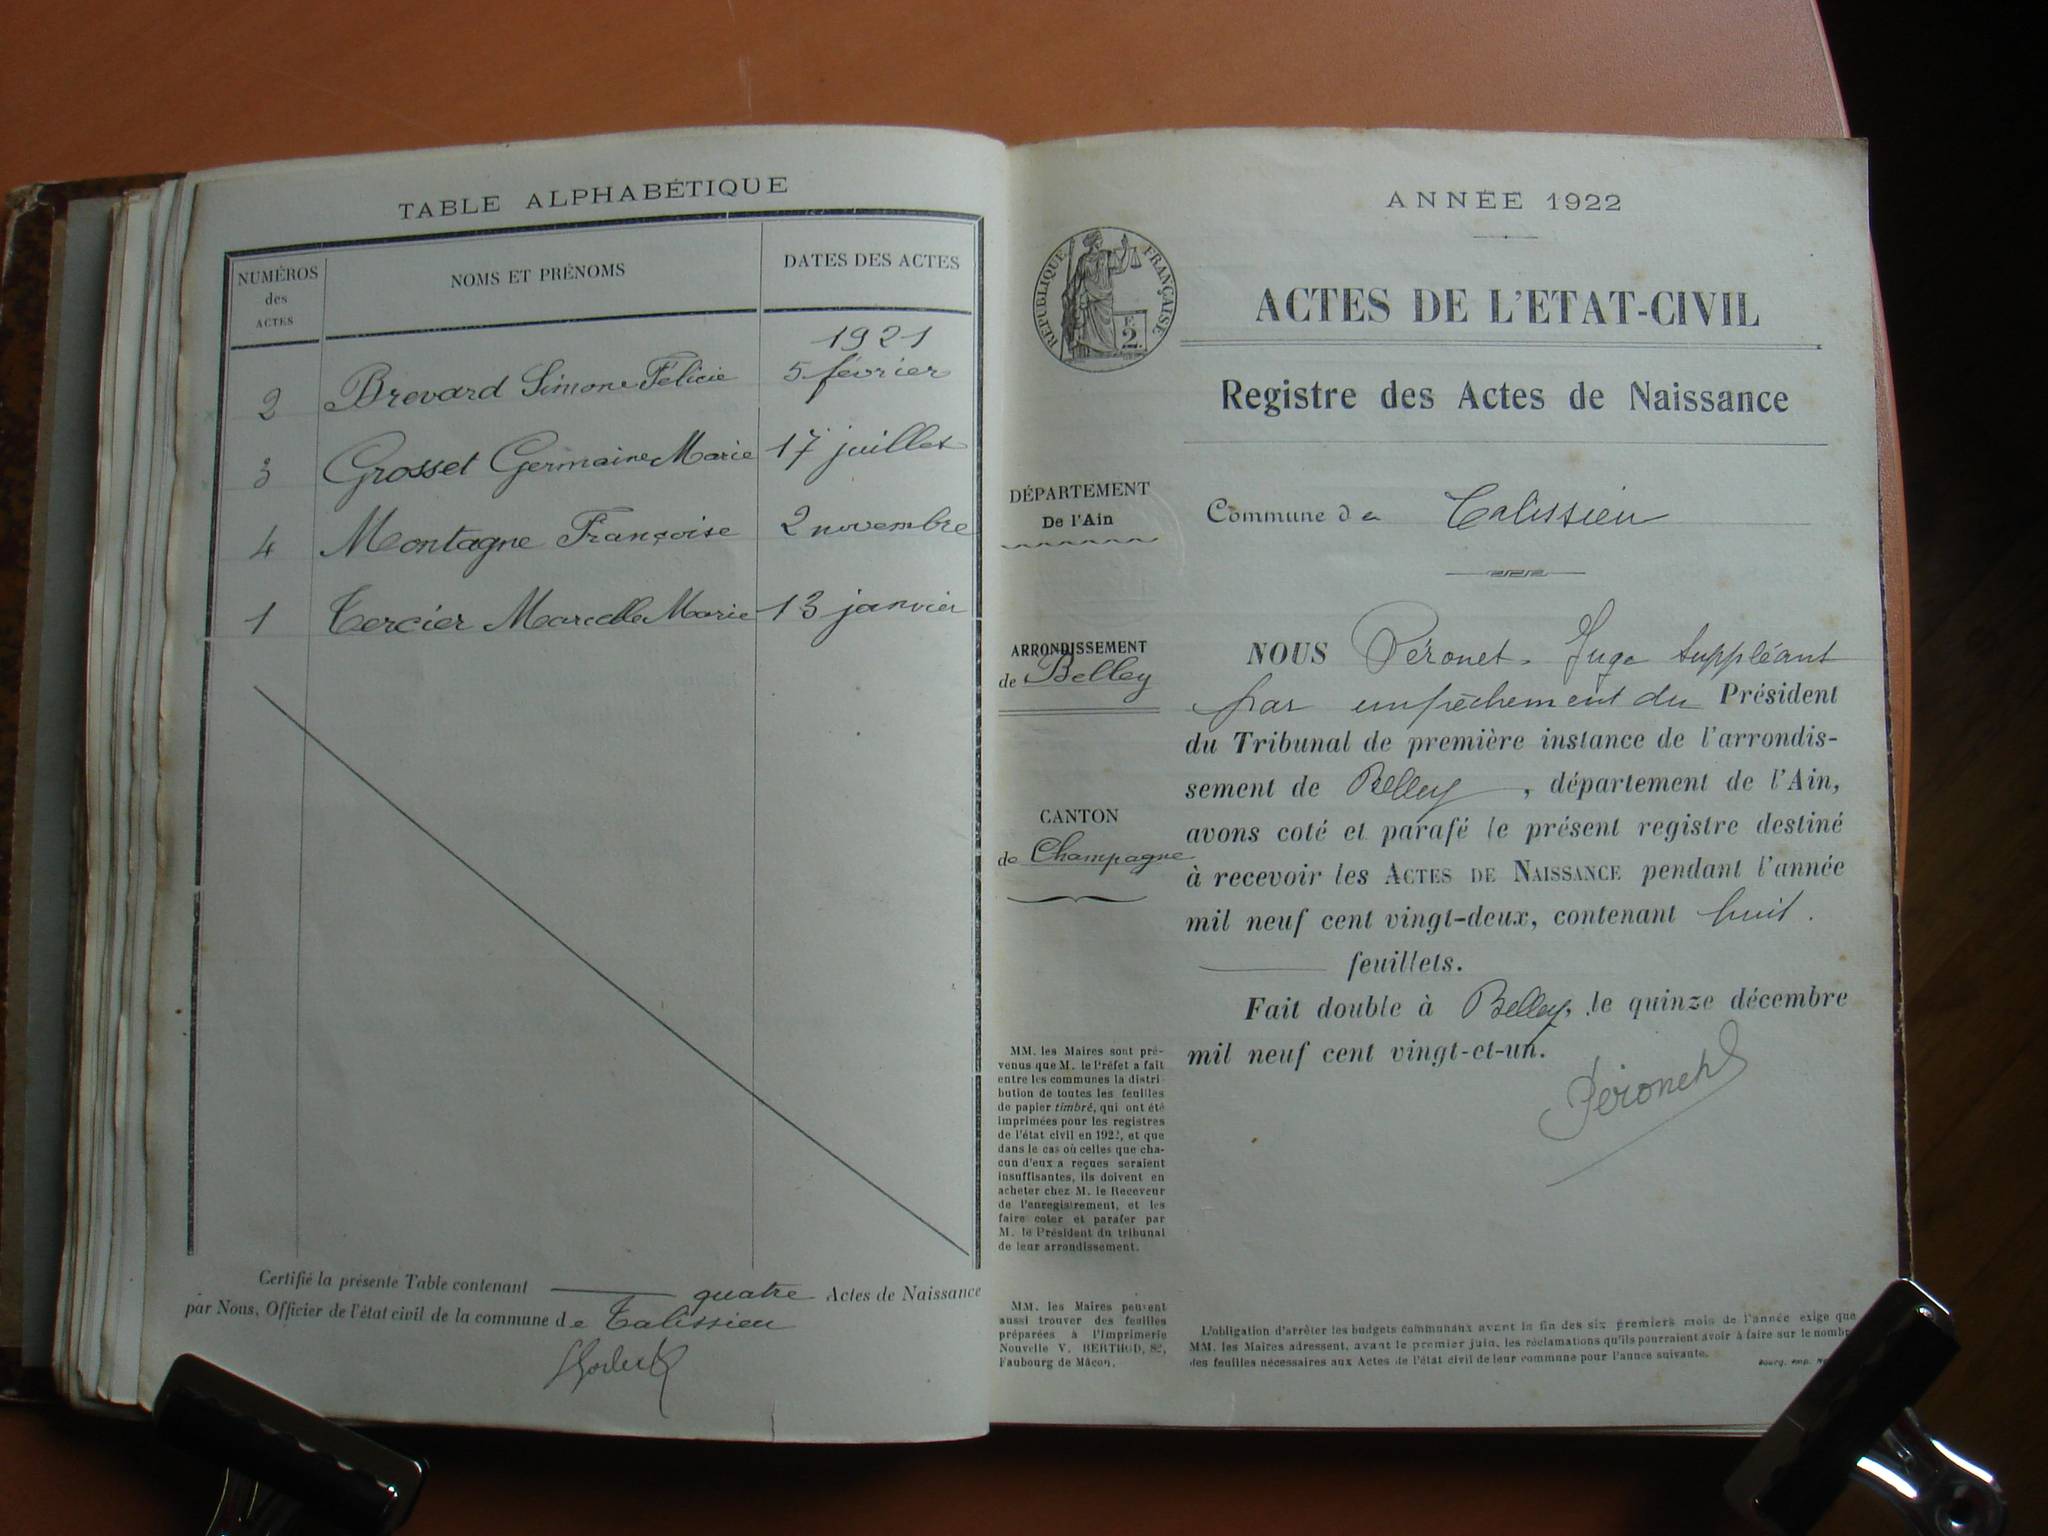 TABLE ALPHABÉTIQUE
NUMÉROS
des
ACTES
NOMS ET PRÉNOMS
DATES DES ACTES
1921
2 Brevard Simone Félicie 5 février
3 Grosset Germaine Marie 17 juillet
4 Montagne Françoise 2 novembre
1 Tercier Marcelle Marie 13 janvier
Certifié la présente Table contenant quatre Actes de Naissance
par Nous, Officier de l'état civil de la commune de Talissieu
ANNÉE 1922
RÉPUBLIQUE FRANÇAISE
2
ACTES DE L'ETAT-CIVIL
Registre des Actes de Naissance
DÉPARTEMENT
De l'Ain
Commune de Talissieu
ARRONDISSEMENT
de Belley
CANTON
de Champagne
NOUS Péronet, Juge Suppléant
par empêchement du Président
du Tribunal de première instance de l'arrondis-
sement de Belley, département de l'Ain,
avons coté et parafé le présent registre destiné
à recevoir les ACTES DE NAISSANCE pendant l'année
mil neuf cent vingt-deux, contenant huit.
feuillets.
Fait double à Belley, le quinze décembre
mil neuf cent vingt-et-un.
Péronet
MM. les Maires sont pré-
venus que M. le Préfet a fait
entre les communes la distri-
bution de toutes les feuilles
de papier timbré, qui ont été
imprimées pour les registres
de l'état civil en 1922, et que
dans le cas où celles que cha-
cun d'eux a reçues seraient
insuffisantes, ils doivent en
acheter chez M. le Receveur
de l'enregistrement, et les
faire coter et parafer par
M. le Président du tribunal
de leur arrondissement.
MM. les Maires peuvent
aussi trouver des feuilles
préparées à l'Imprimerie
Nouvelle V. BERTHOD, 82,
Faubourg de Mâcon.
L'obligation d'arrêter les budgets communaux avant la fin des six premiers mois de l'année exige que
MM. les Maires adressent, avant le premier juin, les réclamations qu'ils pourraient avoir à faire sur le nombre
des feuilles nécessaires aux Actes de l'état civil de leur commune pour l'année suivante.
Bourg, Imp.